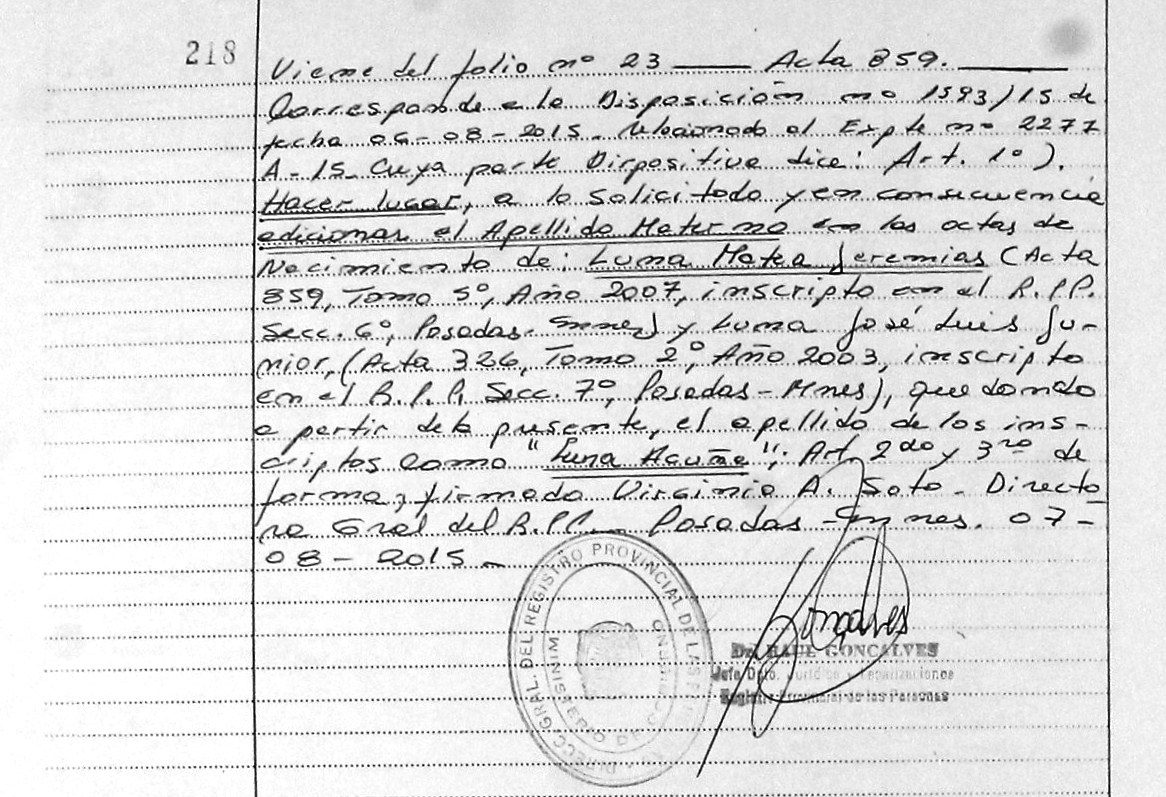 218
Viene del folio nº 23 — Acta 859. —
Corresponde a la Disposición nº 1593/15 de
fecha 06-08-2015. relacionado al Expte nº 2277
A-15. Cuya parte Dispositiva dice: Art. 1º).
Hacer lugar, a lo solicitado y en consecuencia
adicionar el Apellido Materno en las actas de
Nacimiento de: Luna Matea Jeremias (Acta
859, Tomo 5º, Año 2007, inscripto en el R.P.P.
Secc. 6º, Posadas-Mnes) y Luna José Luis Ju-
nior, (Acta 326, Tomo 2º, Año 2003, inscripto
en el R.P.P. Secc. 7º, Posadas-Mnes), quedando
a partir de la presente, el apellido de los ins-
criptos como "Luna Acuña"; Art. 2do y 3ro de
forma, firmado Virginia A. Soto. Directo
ra Gral del R.P.P. Posadas-Mnes. 07-
08-2015.
DIRECC. GRAL. DEL REGISTRO PROVINCIAL DE LAS
MINISTERIO DE GOBIERNO
Goncalves
Dr. RAUL GONCALVES
Jefe Dpto. Jurídico y Legalizaciones
Registro Provincial de las Personas